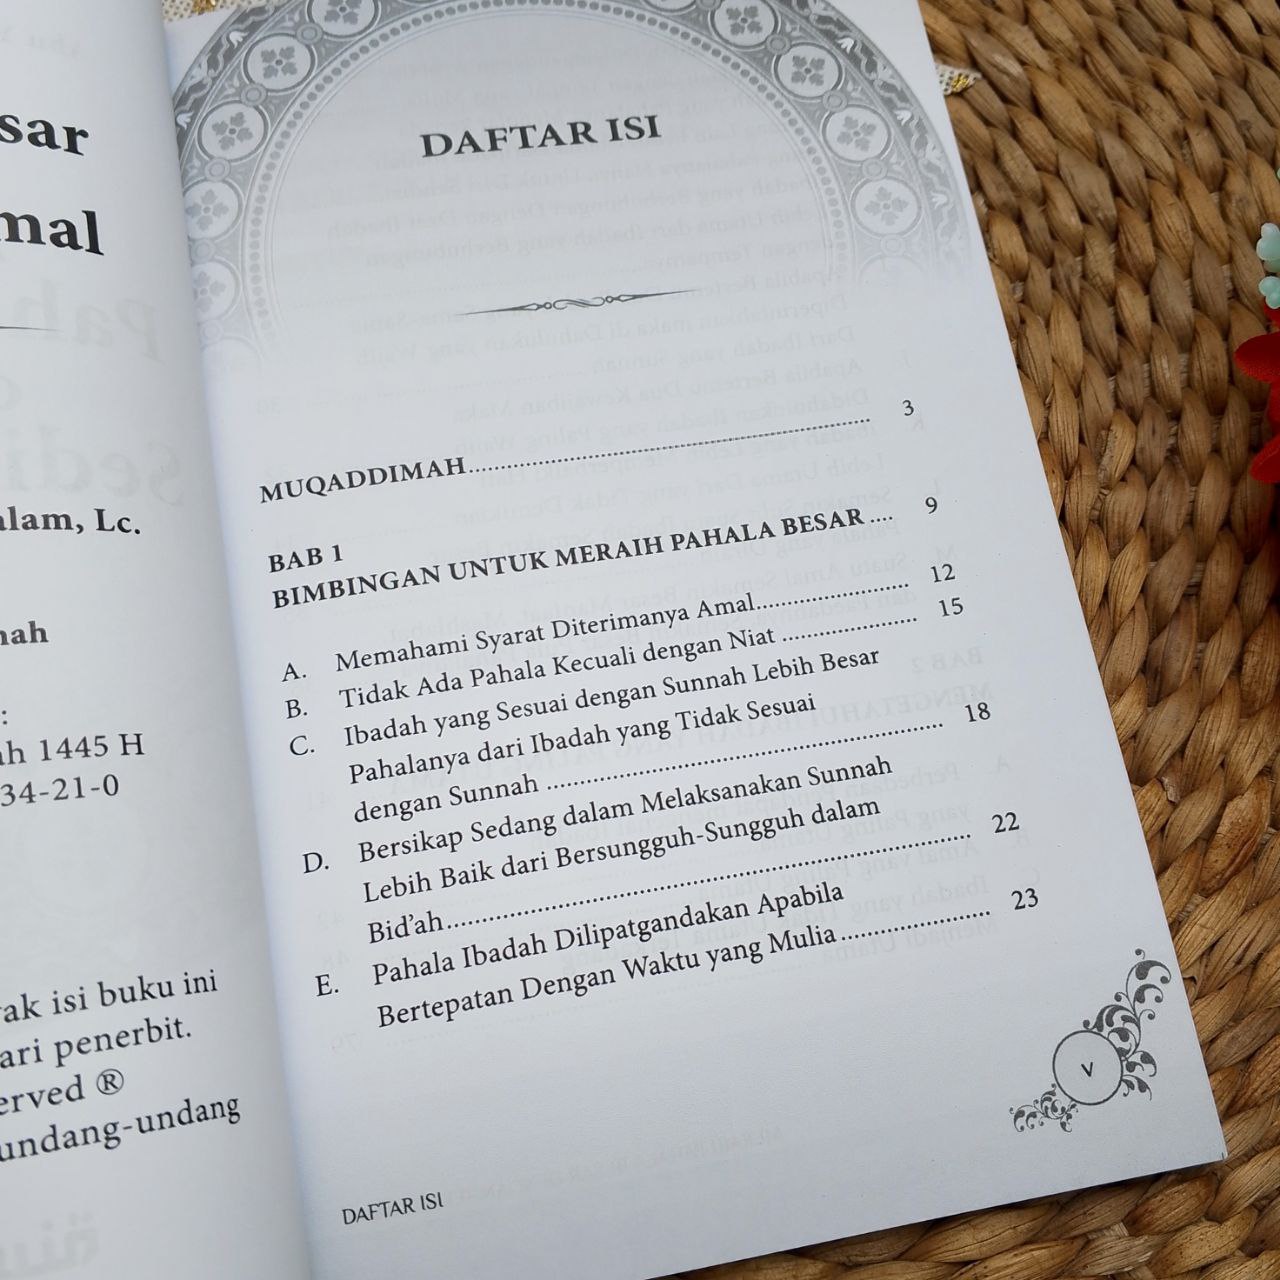 sar
mal
alam, Lc.
nah
:
ah 1445 H
34-21-0
ak isi buku ini
ari penerbit.
erved ®
undang-undang
DAFTAR ISI
MUQADDIMAH........................................................ 3
BAB 1
BIMBINGAN UNTUK MERAIH PAHALA BESAR .... 9
A. Memahami Syarat Diterimanya Amal...................... 12
B. Tidak Ada Pahala Kecuali dengan Niat .................... 15
C. Ibadah yang Sesuai dengan Sunnah Lebih Besar
Pahalanya dari Ibadah yang Tidak Sesuai
dengan Sunnah .......................................................... 18
D. Bersikap Sedang dalam Melaksanakan Sunnah
Lebih Baik dari Bersungguh-Sungguh dalam
Bid’ah........................................................................... 22
E. Pahala Ibadah Dilipatgandakan Apabila
Bertepatan Dengan Waktu yang Mulia...................... 23
v
DAFTAR ISI